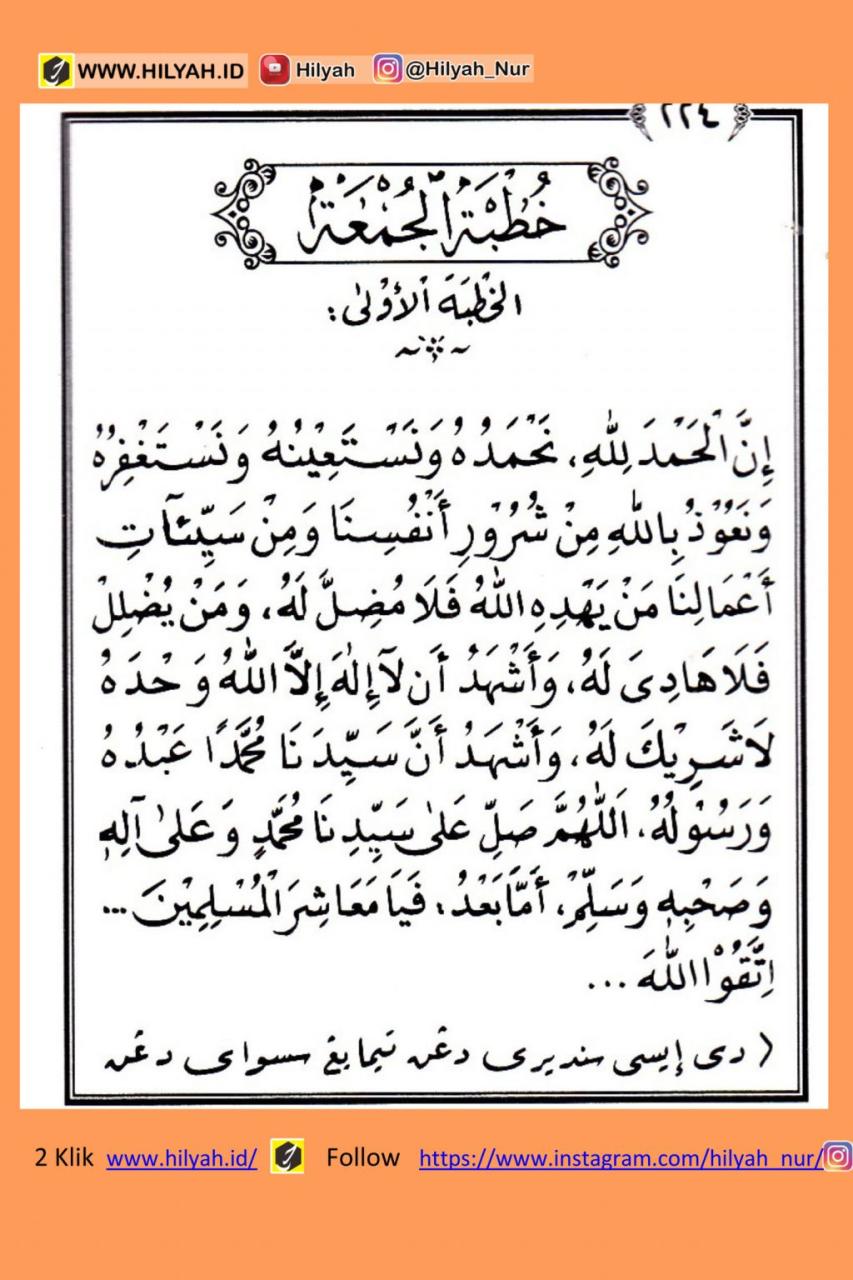 WWW.HILYAH.ID Hilyah @Hilyah_Nur
٢٢٤
خُطْبَةُ الْجُمْعَةِ
الخُطْبَةُ الْأُوْلٰى:
إِنَّ الْحَمْدَ لِلّٰهِ، نَحْمَدُهُ وَنَسْتَعِيْنُهُ وَنَسْتَغْفِرُهُ
وَنَعُوْذُ بِاللّٰهِ مِنْ شُرُوْرِ أَنْفُسِنَا وَمِنْ سَيِّئَآتِ
أَعْمَالِنَا مَنْ يَهْدِهِ اللّٰهُ فَلَا مُضِلَّ لَهُ، وَمَنْ يُضْلِلْ
فَلَا هَادِىَ لَهُ، وَأَشْهَدُ أَن لَآ إِلٰهَ إِلَّا اللّٰهُ وَحْدَهُ
لَا شَرِيْكَ لَهُ، وَأَشْهَدُ أَنَّ سَيِّدَنَا مُحَمَّدًا عَبْدُهُ
وَرَسُوْلُهُ، اَللّٰهُمَّ صَلِّ عَلٰى سَيِّدِنَا مُحَمَّدٍ وَعَلٰى آلِهٖ
وَصَحْبِهٖ وَسَلِّمْ، أَمَّا بَعْدُ: فَيَا مَعَاشِرَ الْمُسْلِمِيْنَ ...
اِتَّقُوْا اللّٰهَ ...
( دى إيسى سنديرى دڠن تيمايڠ سسواى دڠن
2 Klik www.hilyah.id/ Follow https://www.instagram.com/hilyah_nur/